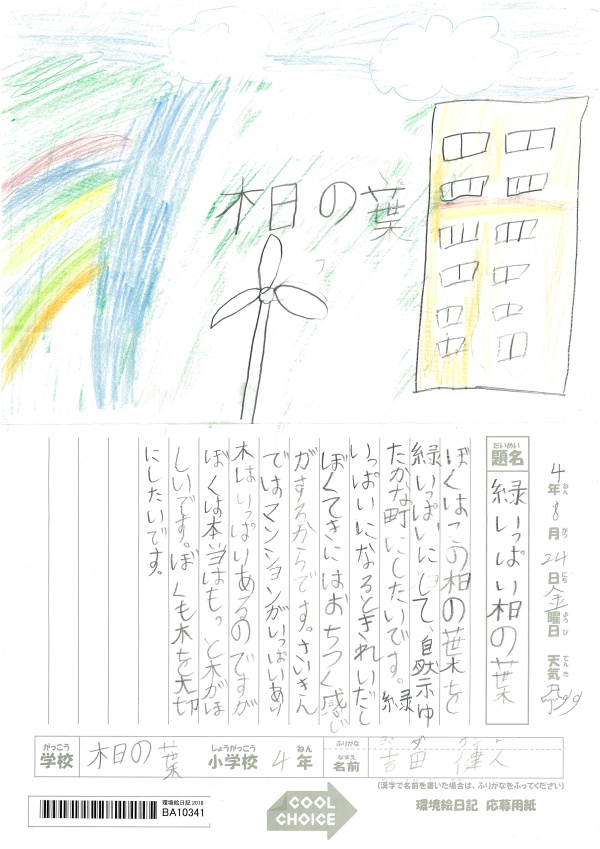 柏の葉
4年8月24日金曜日 天気
ねん がつ にち ようび てんき
だいめい
題名 緑いっぱい柏の葉
ぼくはこの柏の葉を
緑いっぱいにして、自然示ゆ
たかな町にしたいです。緑
いっぱいになるときれいだし
ぼくてきにはおちつく感じ
がするからです。さいきん
ではマンションがいっぱいあり
木はいっぱいあるのですが
ぼくは本当はもっと木がほ
しいです。ぼくも木を大切
にしたいです。
がっこう しょうがっこう ねん ふりがな
学校 柏の葉 小学校 4年
なまえ
名前 吉田 健人
(漢字で名前を書いた場合は、ふりがなをふってください)
環境絵日記 2018
BA10341
COOL
CHOICE
環境絵日記 応募用紙